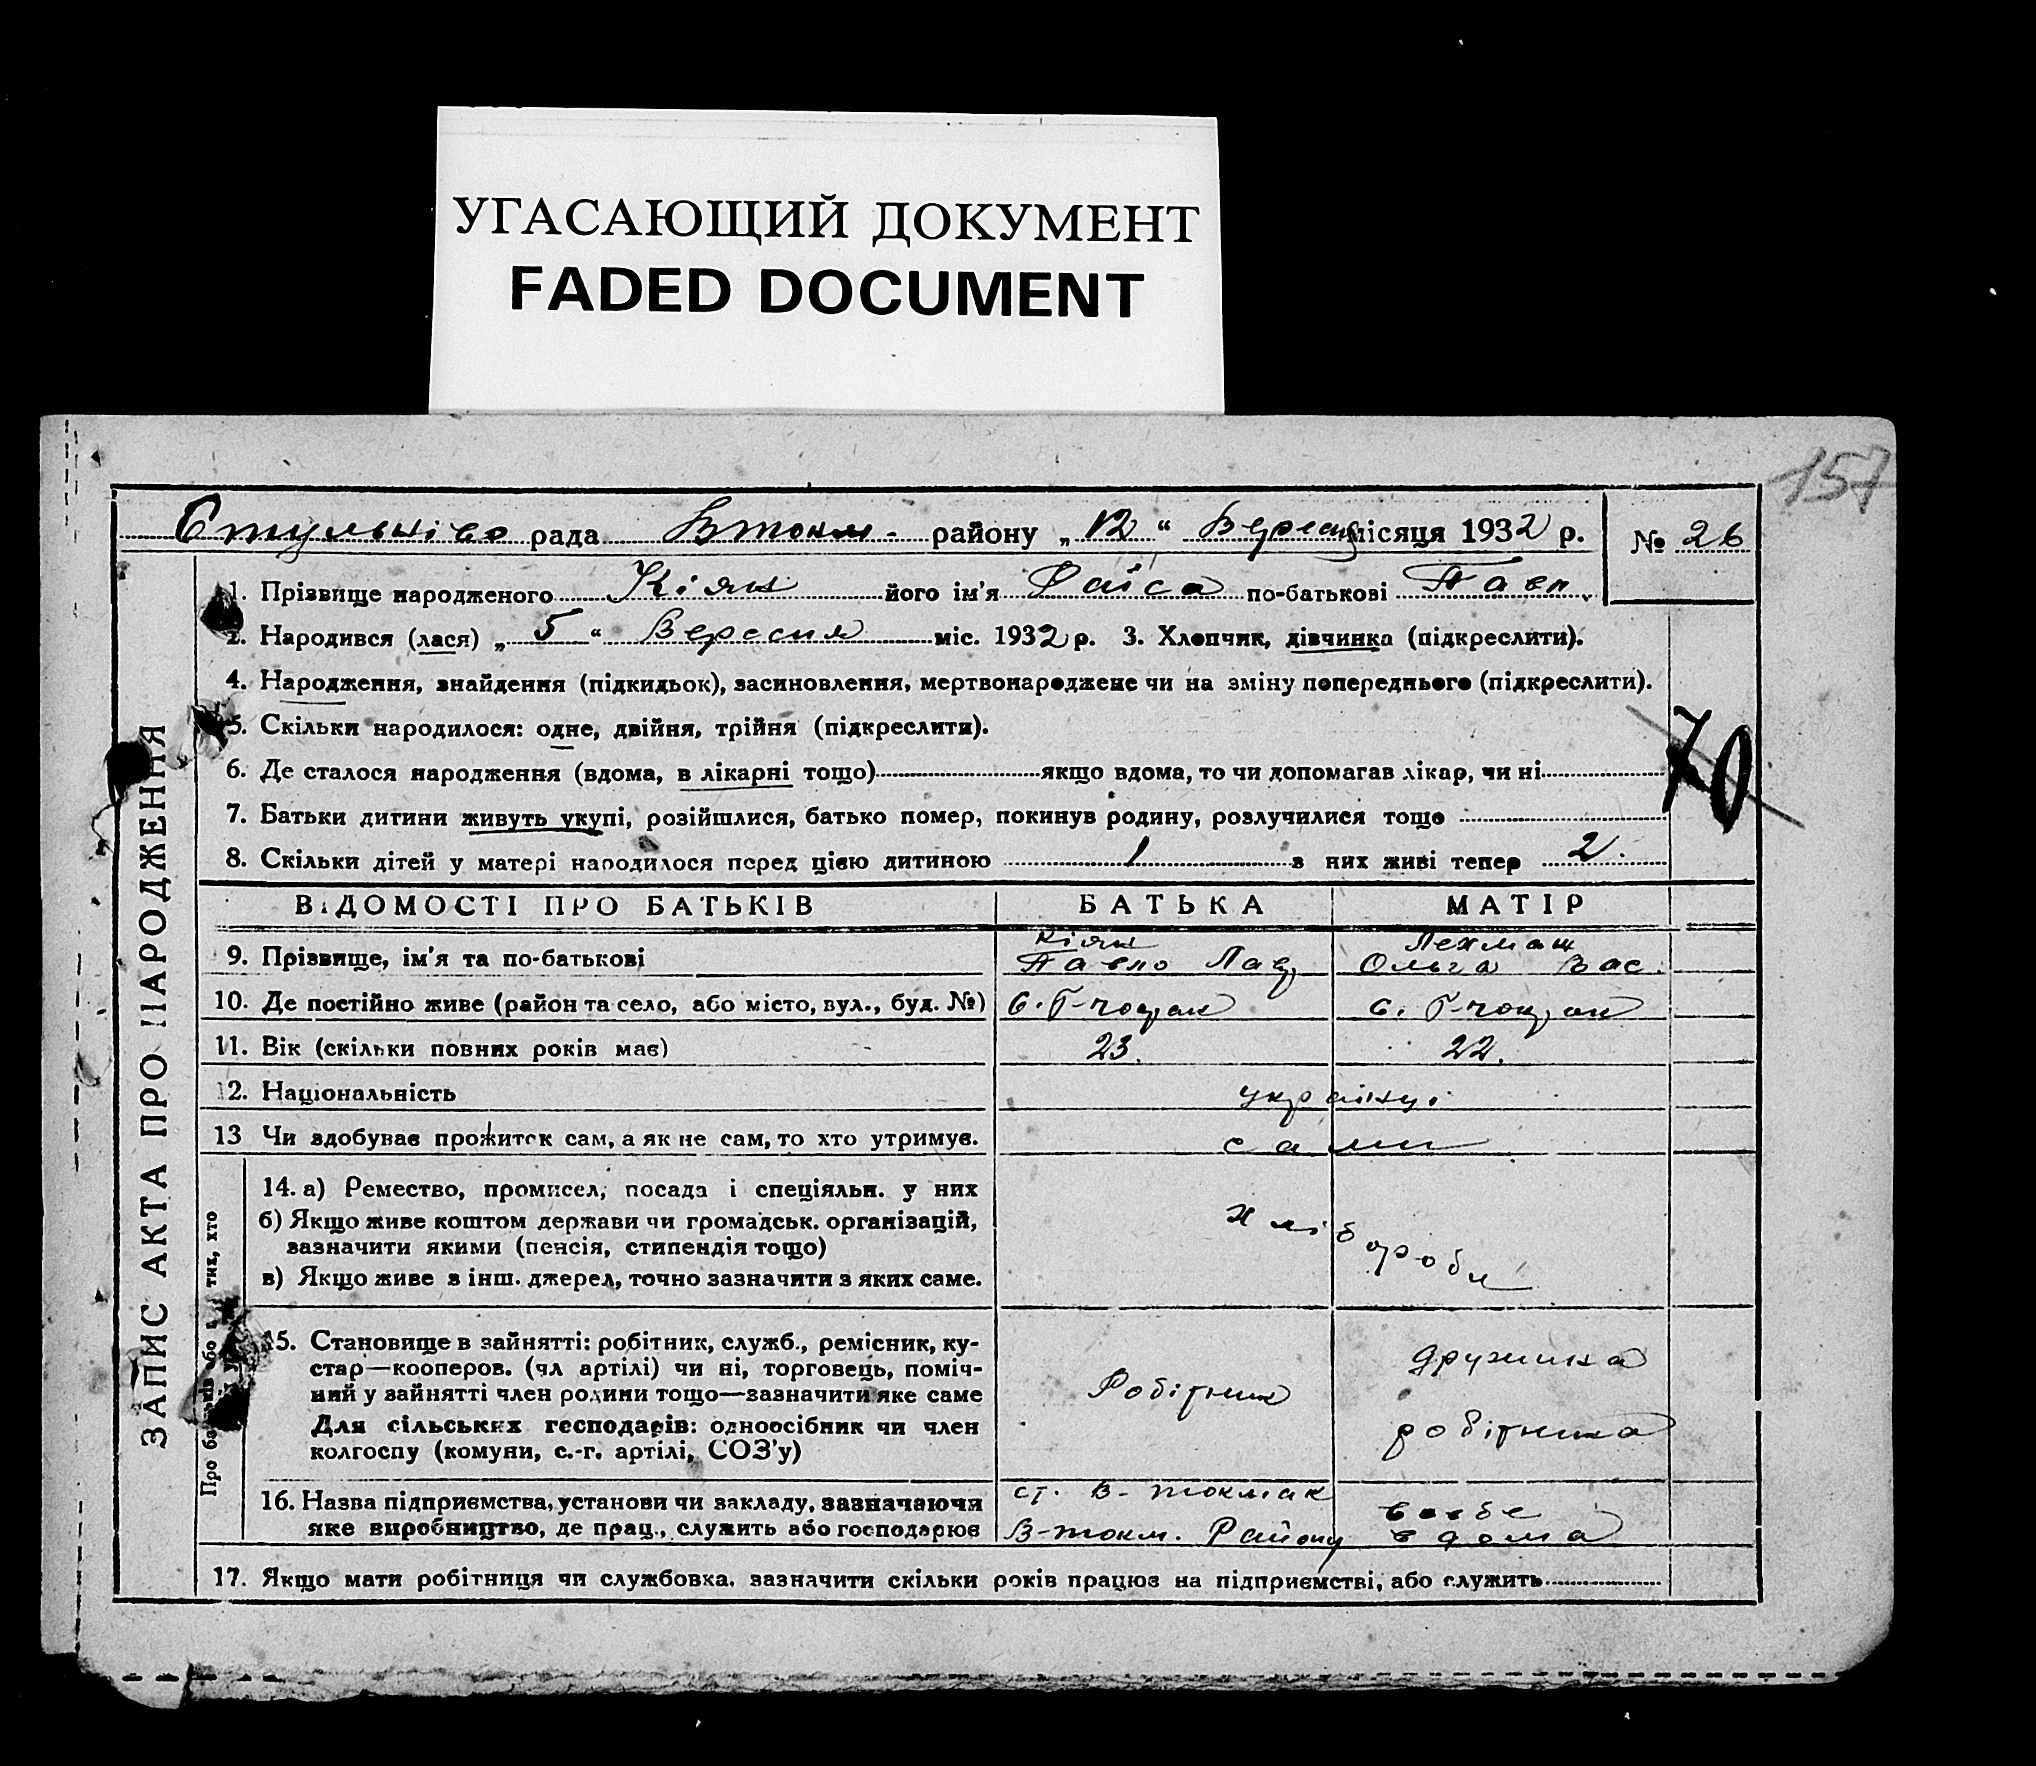 УГАСАЮЩИЙ ДОКУМЕНТ
FADED DOCUMENT
157
рада В токм. району „12“ Вересня місяця 1932 р. № 26
1. Прізвище народженого Кіян його ім'я Раїса по-батькові Павл.
2. Народився (лася) „5“ Вересня міс. 1932 р. 3. Хлопчик, дівчинка (підкреслити).
4. Народження, знайдення (підкидьок), засиновлення, мертвонароджене чи на зміну попереднього (підкреслити).
5. Скільки народилося: одне, двійня, трійня (підкреслити).
6. Де сталося народження (вдома, в лікарні тощо) якщо вдома, то чи допомагав лікар, чи ні
70
7. Батьки дитини живуть укупі, розійшлися, батько помер, покинув родину, розлучилися тощо
8. Скільки дітей у матері народилося перед цією дитиною 1 з них живі тепер 2.
ВІДОМОСТІ ПРО БАТЬКІВ БАТЬКА МАТІР
9. Прізвище, ім'я та по-батькові Кіян Павло Лав Лехман Ольга Вас.
10. Де постійно живе (район та село, або місто, вул., буд. №) с. с.
11. Вік (скільки повних років має) 23. 22.
12. Національність українці
13 Чи здобуває прожиток сам, а як не сам, то хто утримує. сами
14. а) Ремество, промисел, посада і спеціяльн. у них
б) Якщо живе коштом держави чи громадськ. організацій,
зазначити якими (пенсія, стипендія тощо)
в) Якщо живе з інш. джерел, точно зазначити з яких саме.
хліборобы
15. Становище в зайнятті: робітник, служб., ремісник, ку-
стар—кооперов. (чл артілі) чи ні, торговець, поміч-
ний у зайнятті член родини тощо—зазначити яке саме
Для сільських господарів: одноосібник чи член
колгоспу (комуни, с.-г. артілі, СОЗ'у)
Робітник
дружина
робітника
16. Назва підприємства, установи чи закладу, зазначаючи
яке виробництво, де прац., служить або господарює
ст. В-токмак
В-токм. Району
в себе
в дома
17. Якщо мати робітниця чи службовка, зазначити скільки років працює на підприємстві, або служить
ЗАПИС АКТА ПРО НАРОДЖЕННЯ